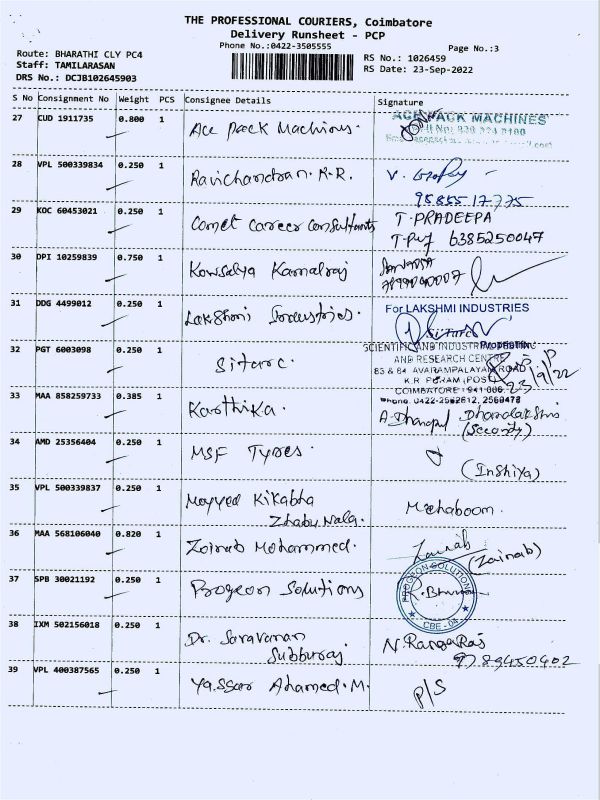 THE PROFESSIONAL COURIERS, Coimbatore
Delivery Runsheet - PCP
Phone No.:0422-3505555
Page No.:3
Route: BHARATHI CLY PC4
Staff: TAMILARASAN
DRS No.: DCJB102645903
RS No.: 1026459
RS Date: 23-Sep-2022
S No Consignment No Weight PCS Consignee Details Signature
27 CUD 1911735 0.800 1 Ace Pack Machines.
ACE PACK MACHINES
28 VPL 500339834 0.250 1 Ravichandran. R.R.
29 KOC 60453021 0.250 1 Comet Career Consultants T. PRADEEPA
6385250047
30 DPI 10259839 0.750 1 Kowsalya Kamalraj
31 DDG 4499012 0.250 1 Lakshmi Industries.
For LAKSHMI INDUSTRIES
Proprietrix
32 PGT 6003098 0.250 1 Sitarc.
SCIENTIFIC AND INDUSTRIAL TESTING
AND RESEARCH CENTRE
83 & 84 AVARAMPALAYAM ROAD
K.R. PURAM (POST)
COIMBATORE - 641 006
Phone: 0422-2562612, 2560478
23/9/22
33 MAA 858259733 0.385 1 Karthika.
(Security)
34 AMD 25356404 0.250 1 MSF Tyres.
(Inshiya)
35 VPL 500339837 0.250 1 Mayyed Kikabha
Zhabu Nala.
Mehaboom.
36 MAA 568106040 0.820 1 Zainab Mohammed.
Zainab
(Zainab)
37 SPB 30021192 0.250 1 Progeon Solutions
PROGEON SOLUTIONS
CBE - 04
38 IXM 502156018 0.250 1 Dr. Saravanan
Subburaj.
N. RangaRaj
9789450402
39 VPL 400387565 0.250 1 Yassar Ahamed. M.
P/S